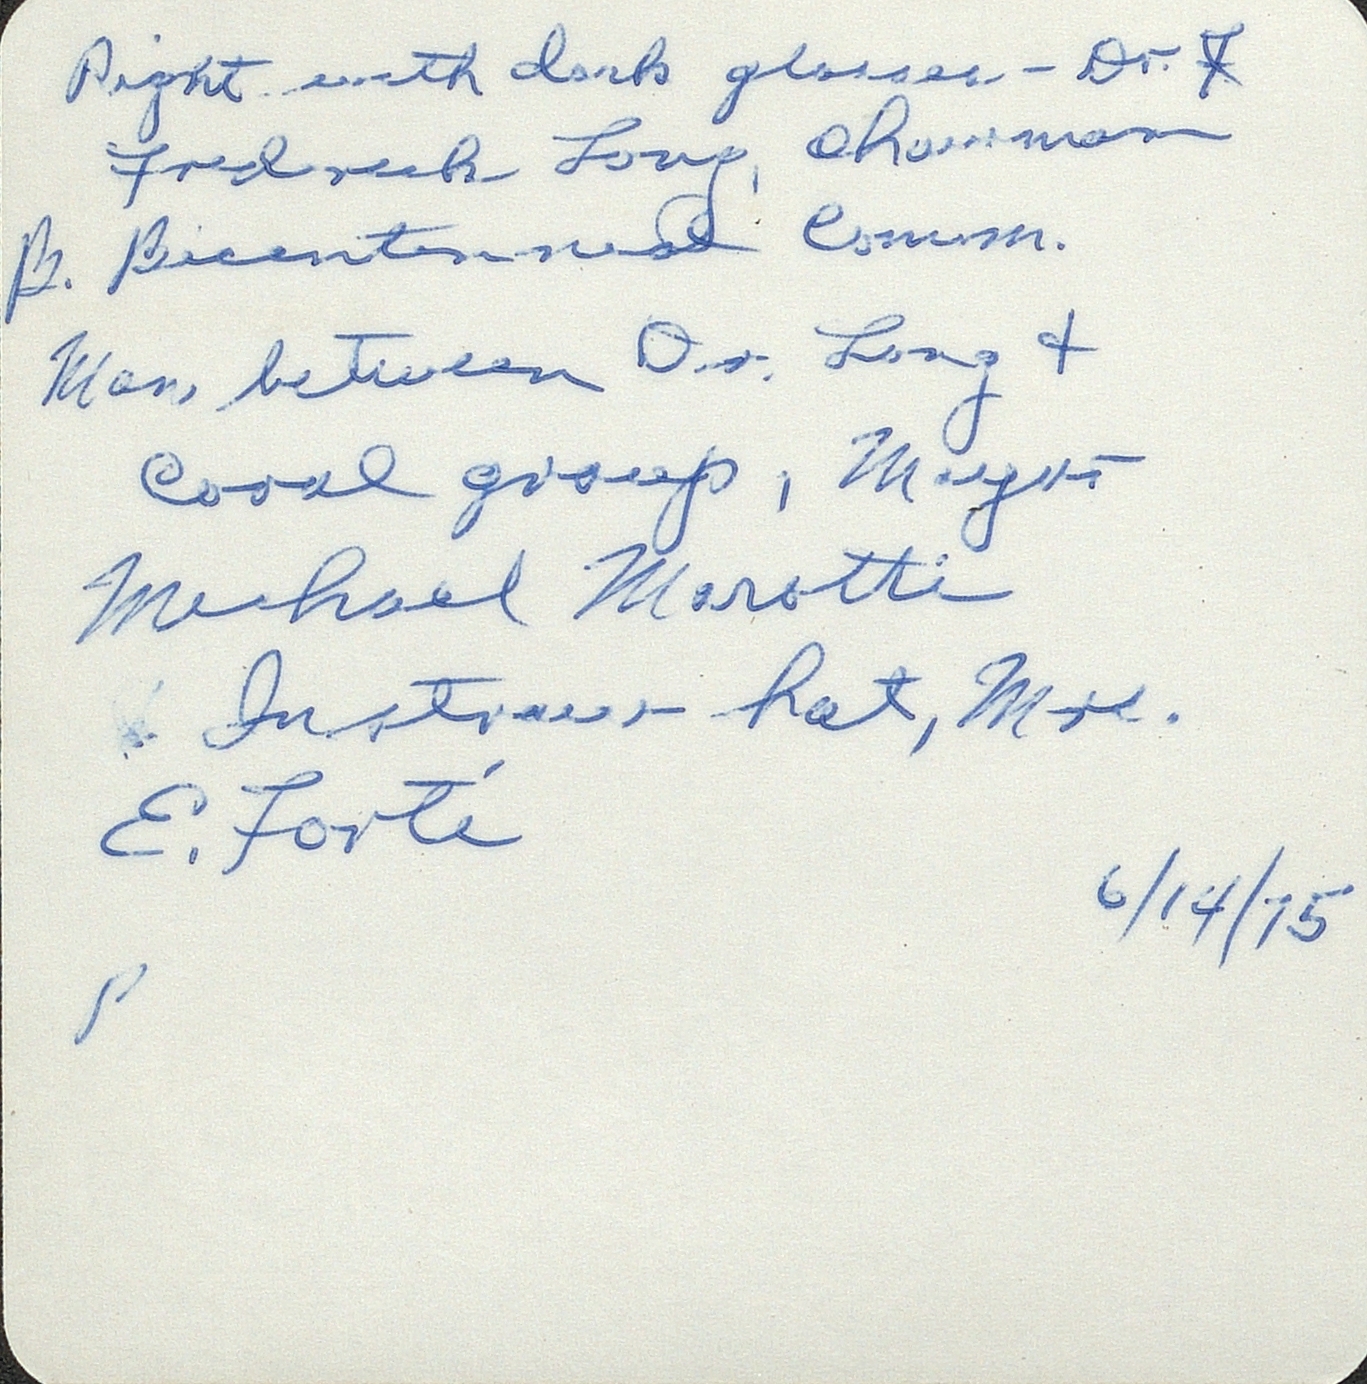 Right with dark glasses - Dr. F
Fredrick Long, Chairman
B. Bicentennial Comm.
Man between Dr. Long &
Coral group, Mayor
Michael Marotti
In straw hat, Mrs.
E. Forté
6/14/75